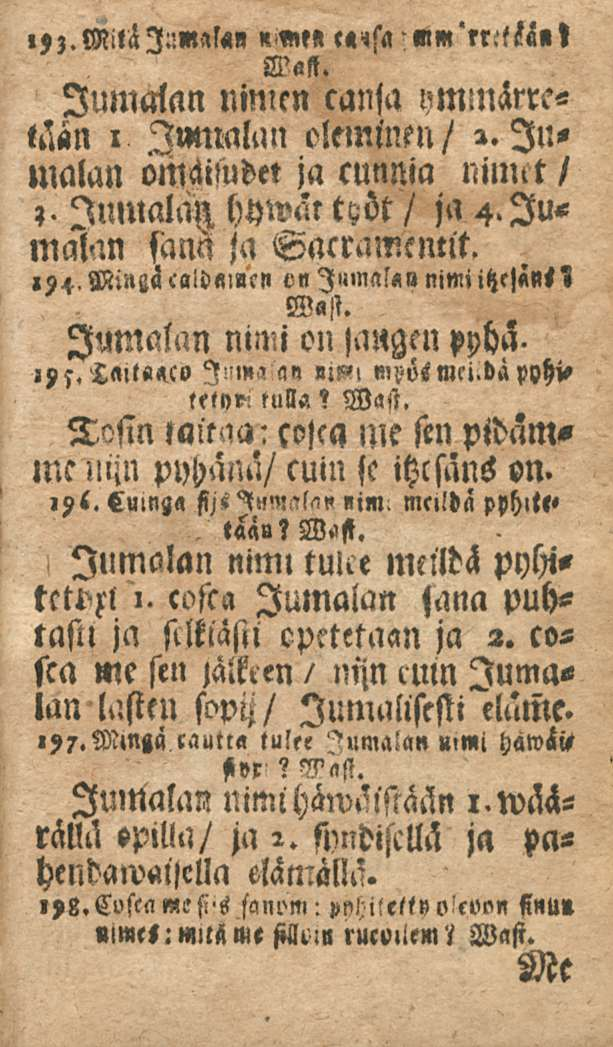 193. Mitä Jumalan nimen cansa ymmärretään?
Wast.
Jumalan nimen cansa ymmärre=
tään 1 Jumalan oleminen / 2. Ju=
malan omaisudet ja cunnia nimet /
3. Jumalan hywät työt / ja 4. Ju=
malan sana ja Sacramentit.
194. Mingä caldainen on Jumalan nimi itzesäns?
Wast.
Jumalan nimi on jangen pyhä.
195. Taitaaco Jumalan nimi myös meildä pyhi=
tetyxi tulla? Wast.
Tosin taitaa: cosca me sen pidäm=
me nijn pyhänä/ cuin se itzesäns on.
196. Cuinga sijs Jumalan nimi meildä pyhite=
tään? Wast.
Jumalan nimi tulee meildä pyhi=
tetyxi 1. cosca Jumalan sana puh=
tasti ja selkiästi opetetaan ja 2. co=
sca me sen jälkeen / nijn cuin Juma=
lan lasten sopij / Jumalisesti eläm̃e.
197. Mingä cautta tulee Jumalan nimi häwäis
styxi? Wast.
Jumalan nimi häwäistään 1. wää=
rällä opilla/ ja 2. syndisellä ja pa=
hendawaisella elämällä.
198. Cosca me sijs sanom: pyhitetty olcoon sinun
nimes: mitä me silloin rucoilem? Wast.
Me